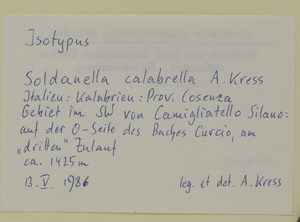 Isotypus
Soldanella calabrella A. Kress
Italien: Kalabrien: Prov. Cosenza
Gebiet im SW von Camigliatello Silano:
auf der O-Seite des Baches Curcio, am
„dritten" Zulauf
ca. 1425 m
13. V. 1986 leg. et det. A. Kress